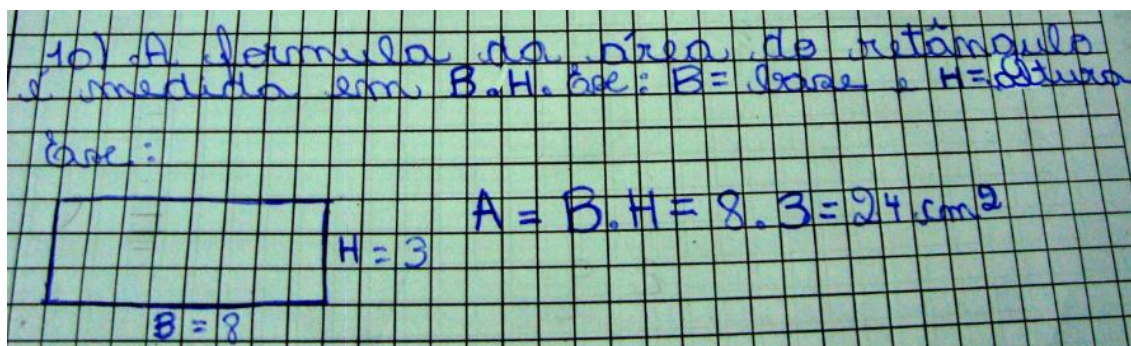 10) A formula da área do retângulo
é medida em B.H. Ese: B= base e H=altura
Ese:
A = B.H = 8.3 = 24 cm²
H = 3
B = 8